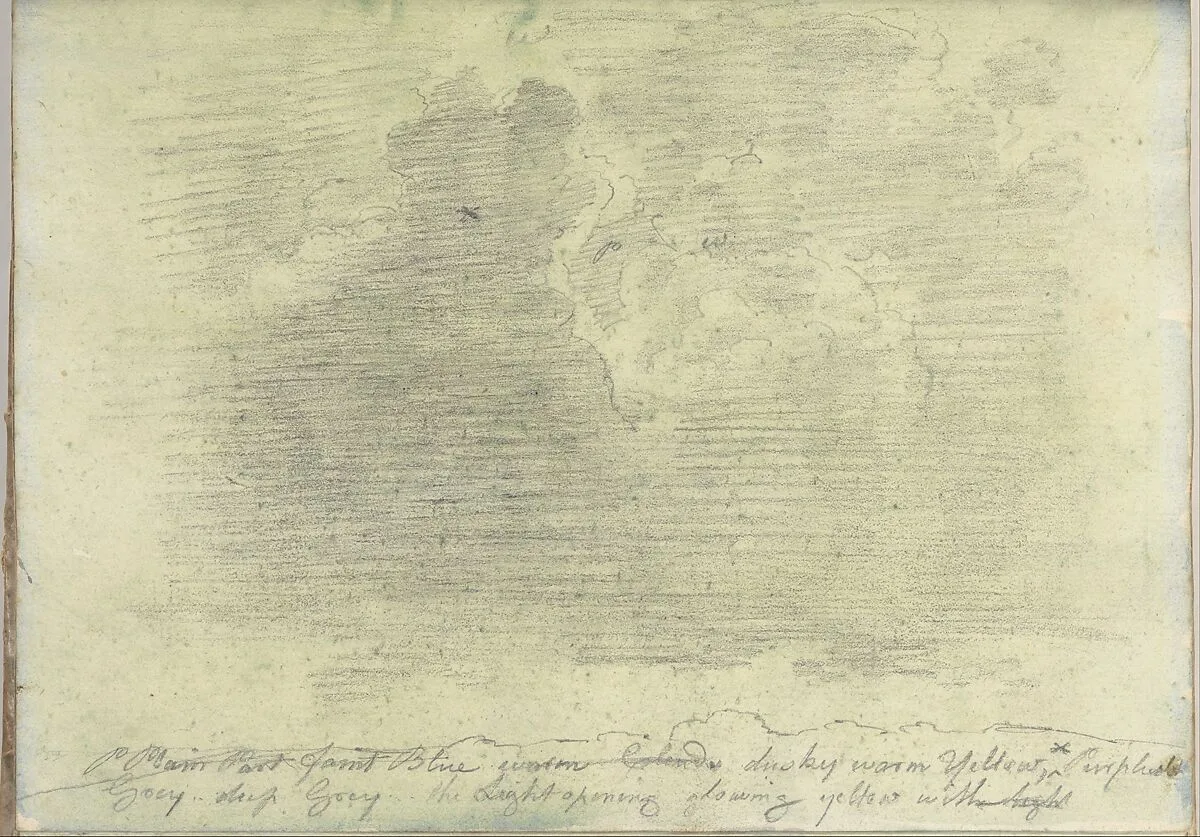 x
p w
P Plain Part faint Blue warm Colend dusky warm Yellow x Purplish
Grey deep Grey the Light opening glowing yellow with light